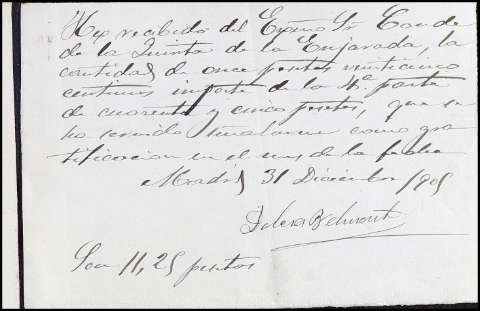 He recibido del Exmo Sr Conde
de la Quinta de la Enjarada, la
cantidad de once pesetas veinticinco
centimos importe de la 4ª parte
de cuarenta y cinco pesetas, que se
ha servido señalarme como gra
tificacion en el mes de la fecha
Madrid 31 Diciembre 1905
Belmonte
Son 11,25 pesetas